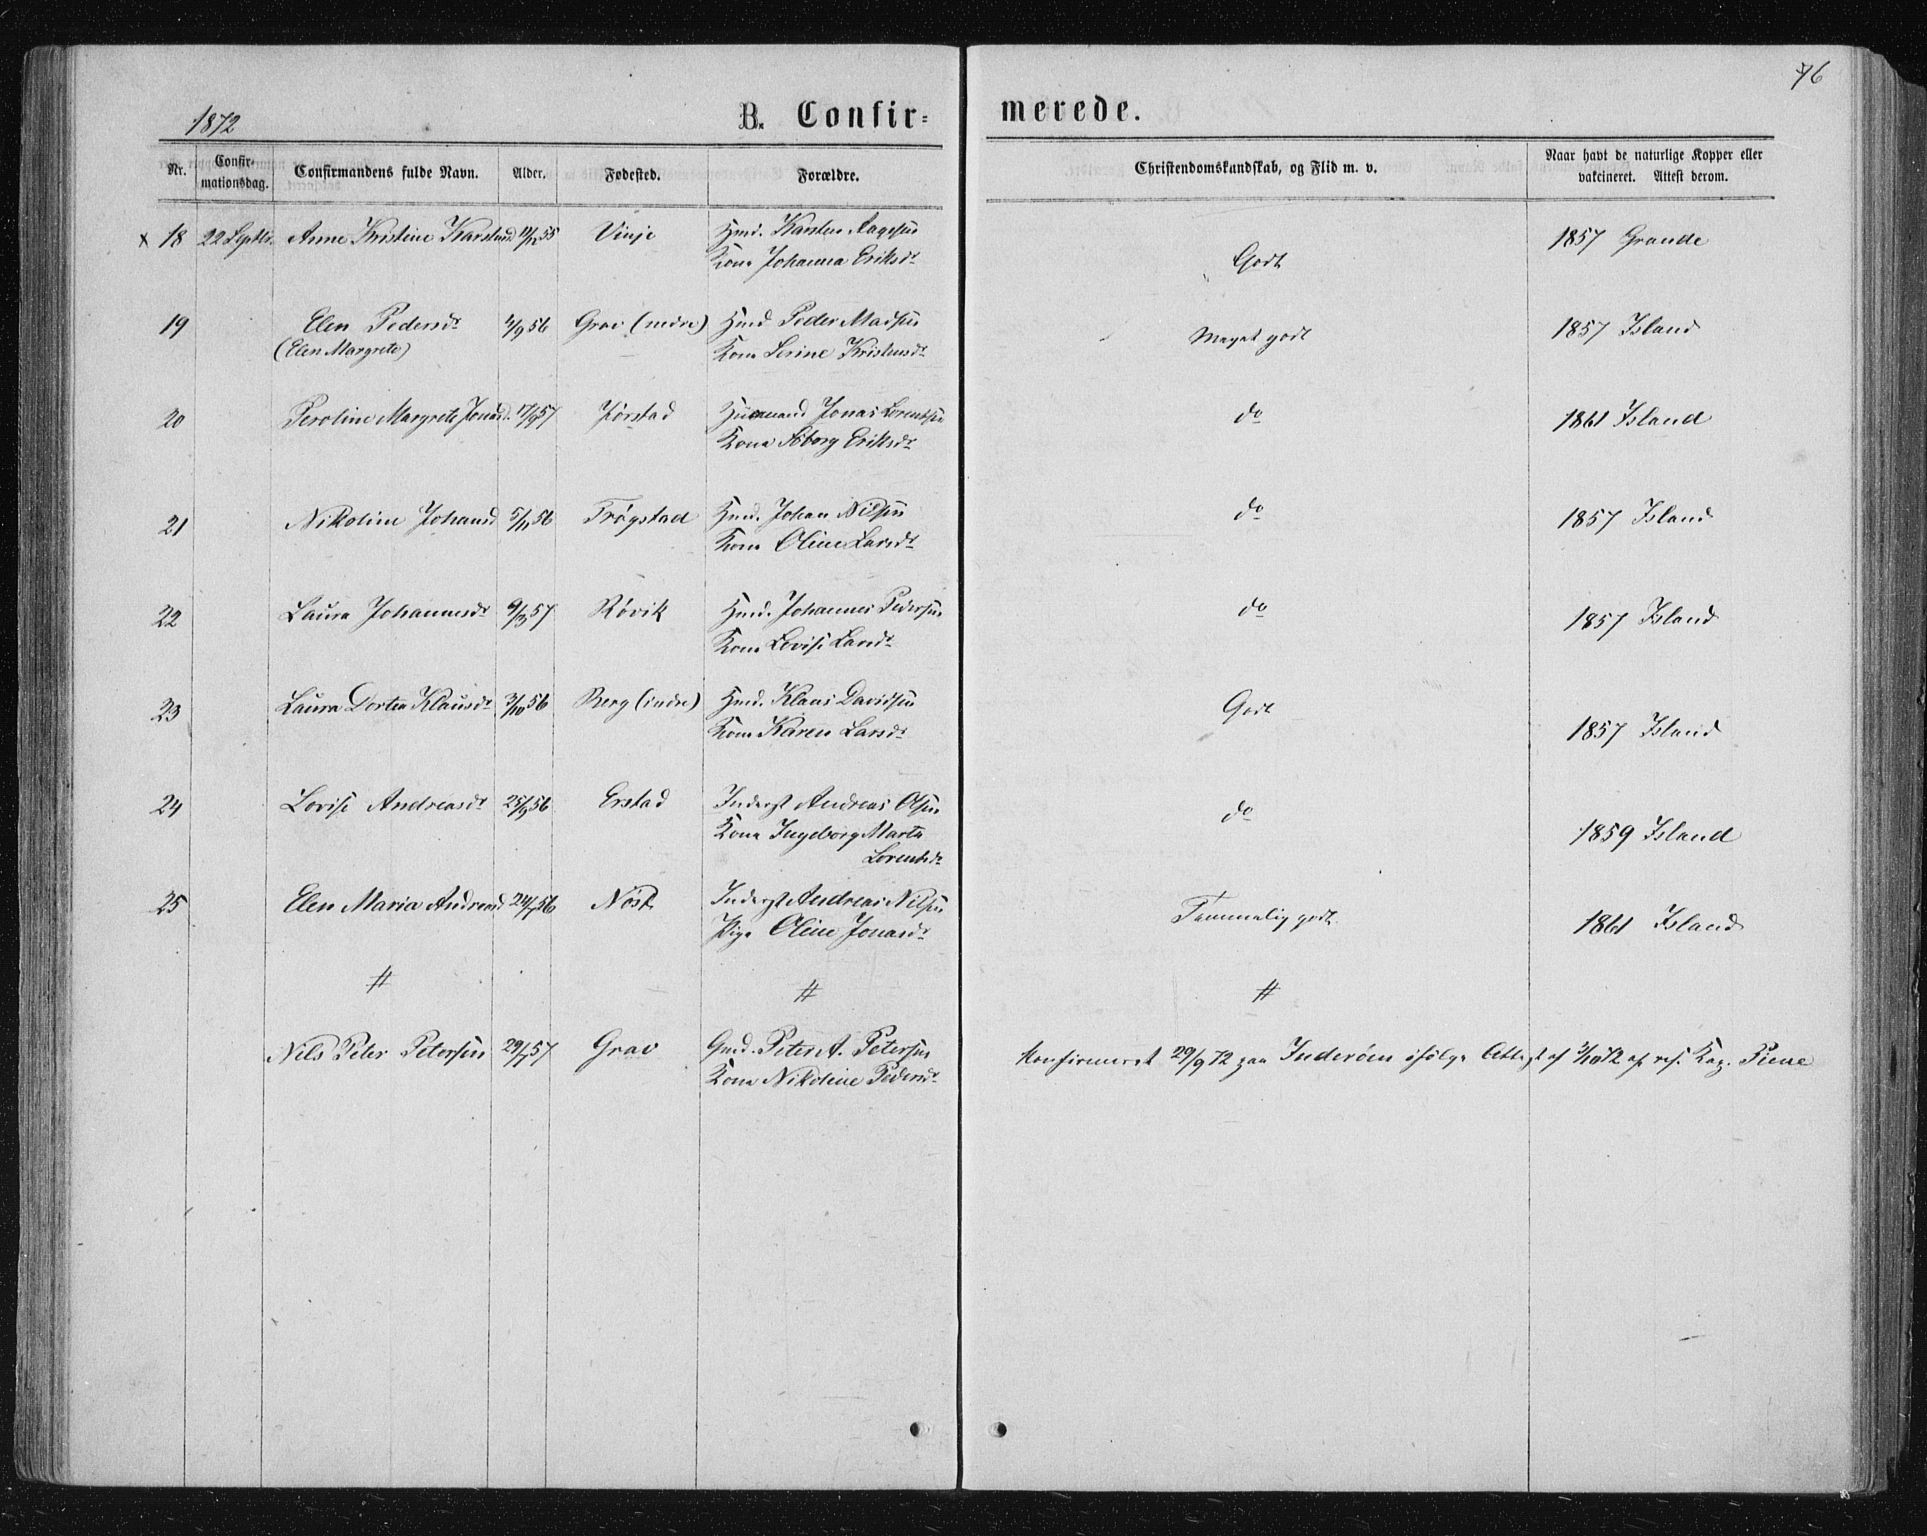 76
1872
B. Confir=
merede.
Nr.
Confir-
mationsdag.
Confirmandens fulde Navn.
Alder.
Fødested.
Forældre.
Christendomskundskab, og Flid m. v.
Naar havt de naturlige Kopper eller
vakcineret. Attest derom.
x 18 22 Septbr. Anne Kristine Karstensd Vinje Hmd. Karsten Aagesen
Kone Johanna Eriksdr
Godt
1857 Grande
19 Elen Pedersdr 4/9 56 Grav (nedre) Hmd Peder Madsen
(Elen Margrete) Kone Serine Kristensdr
Meget godt
1857 Island
20 Peroline Margrete Jonasd. 17/9 57 Jørstad Huusmand Jonas Lorentsen
Kone Eriksdr
do
1861 Island
21 Nikoline Johansd 5/11 56 Trøgstad Hmd. Johan Nilsen
Kone Oline Larsdr
do
1857 Island
22 Laura Johannesdr 9/3 57 Røvik Hmd. Johannes Pedersen
Kone Lovise Larsdr
do
1857 Island
23 Laura Dortea Klausdr 3/10 56 Berg (indre) Hmd. Klaus Davidsen
Kone Karen Larsdr
Godt
1857 Island
24 Lovise Andreasdr 25/9 56 Erstad Inderst Andreas Olsen
Kone Ingeborg Marta
Lorentsdr
do
1859 Island
25 Elen Maria Andreasd 24/7 56 Nøst Inderst Andreas Nilsen
Pige Oline Jonasdr
Temmelig godt
1861 Island
# # #
Nils Peter Petersen 29/7 57 Grav Gmd. Peter A. Petersen
Kone Nikoline Pedersdr
Konfirmeret 29/9 72 paa Inderøen ifølge Attest af 3/10 72 af res. Kap. Piene